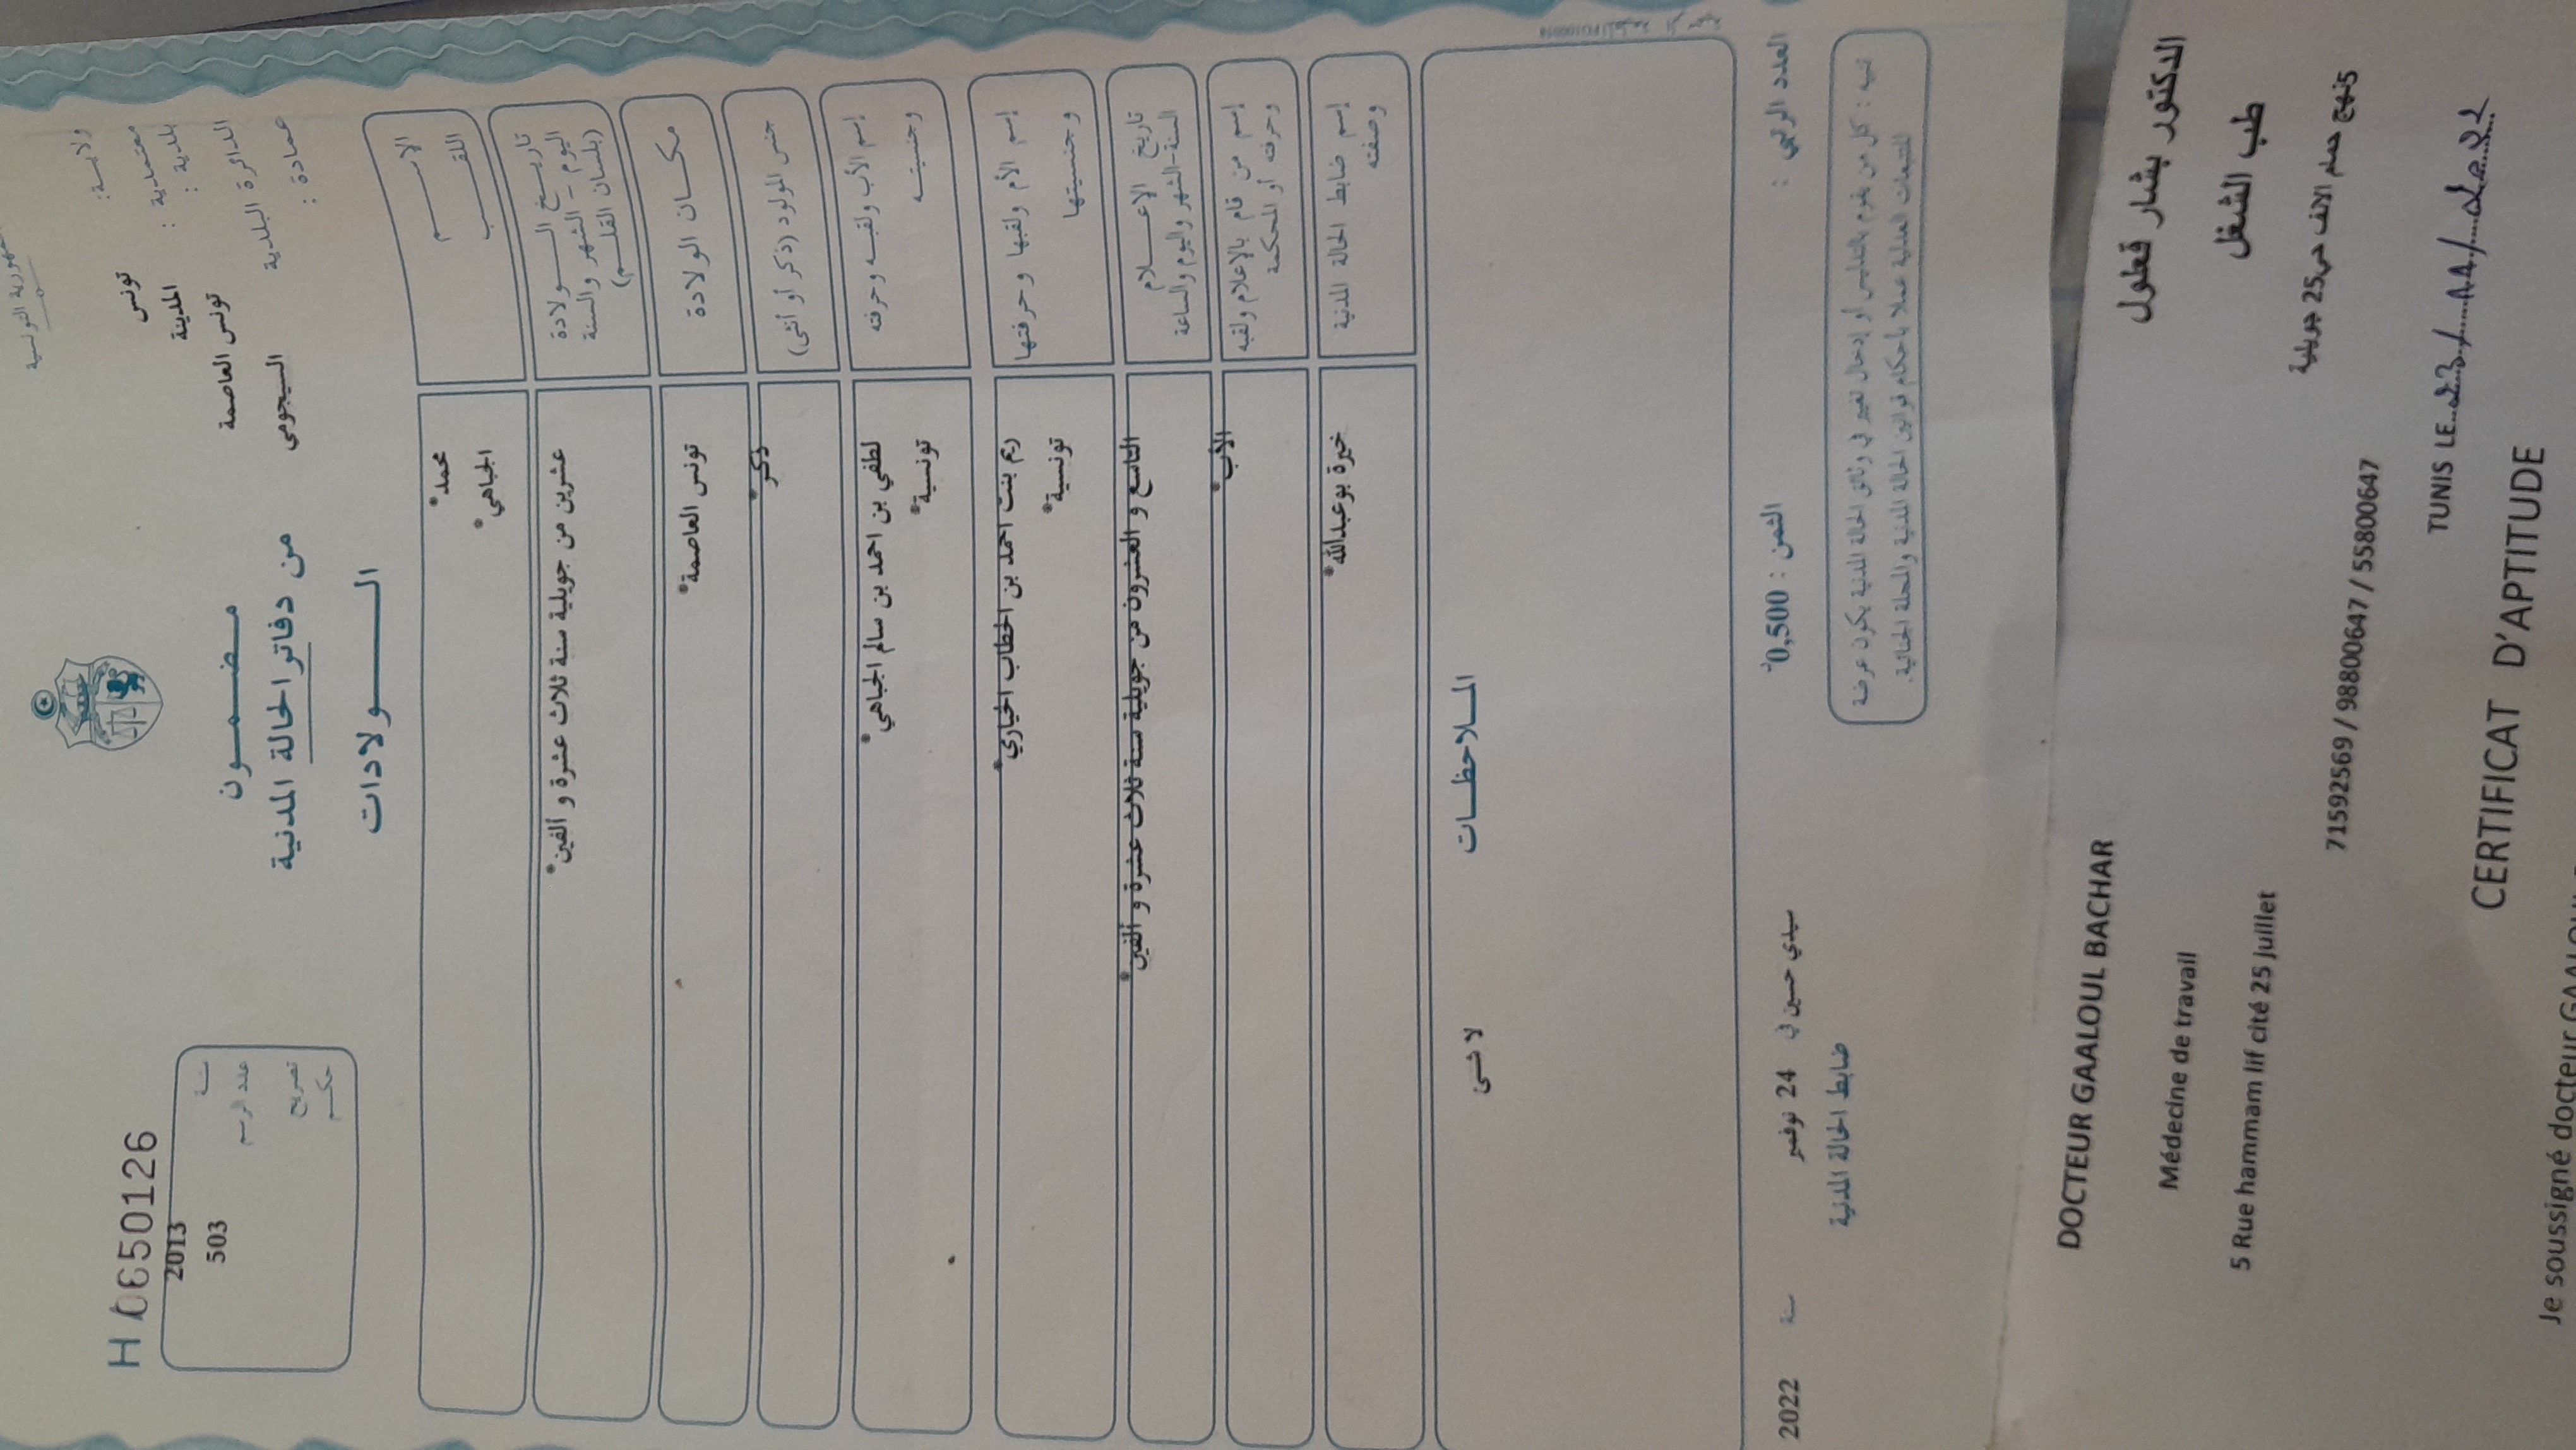 الجمهورية التونسية
ولاية: تونس
معتمدية : المدينة
بلدية : تونس العاصمة
الدائرة البلدية السيجومي
عمادة :
مضمون
من دفاتر الحالة المدنية
الولادات
H 0650126
2013 سنة
503 عدد الرسم
تصريح
حكم
الاسم محمد*
اللقب الجباهي*
تاريخ الولادة
اليوم - الشهر والسنة
(بلسان القلم)
عشرين من جويلية سنة ثلاث عشرة و ألفين*
مكان الولادة تونس العاصمة*
جنس المولود (ذكر أو أنثى) ذكر*
إسم الأب ولقبه وحرفته لطفي بن احمد بن سالم الجباهي*
وجنسيته تونسية*
إسم الأم ولقبها وحرفتها ريم بنت احمد بن الحطاب الخياري*
وجنسيتها تونسية*
تاريخ الإعلام
السنة-الشهر واليوم والساعة
التاسع و العشرون من جويلية سنة ثلاث عشرة و ألفين*
إسم من قام بالإعلام ولقبه
وحرفته أو المحكمة
الأب*
إسم ضابط الحالة المدنية
وصفته
خيرة بوعبدالله*
الملاحظات
لا شىء
العدد الرتبي :
الثمن : 0,500د
سيدي حسين في 24 نوفمبر سنة 2022
ضابط الحالة المدنية
تنبيه : كل من يقوم بالتدليس أو إدخال تغيير في وثائق الحالة المدنية يكون عرضة
للتتبعات العدلية عملا بأحكام قوانين الحالة المدنية والمجلة الجنائية.
DOCTEUR GAALOUL BACHAR
الدكتور بشار قعلول
Médecine de travail
طب الشغل
5 Rue hammam lif cité 25 juillet
5نهج حمام الانف حي25 جويلية
71592569 / 98800647 / 55800647
TUNIS LE 23/11/2022
CERTIFICAT D'APTITUDE
Je soussigné docteur GAALOUL